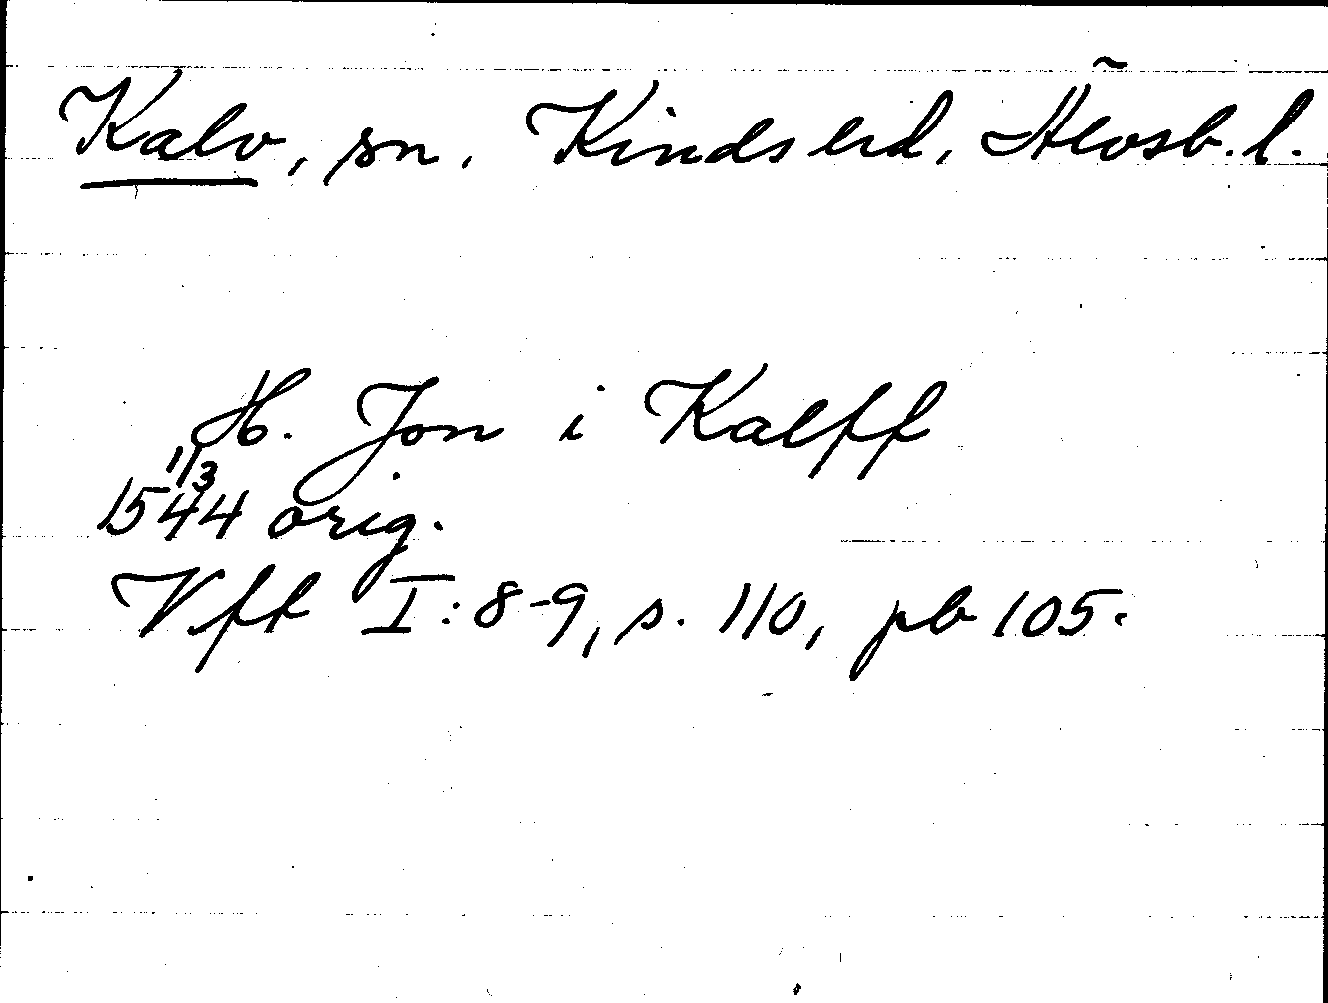 Kalv, sn. Kinds hd, Älvsb. l.
H. Jon i Kalff
1544 1/3 orig.
Vft I: 8-9, s. 110, pb 105.